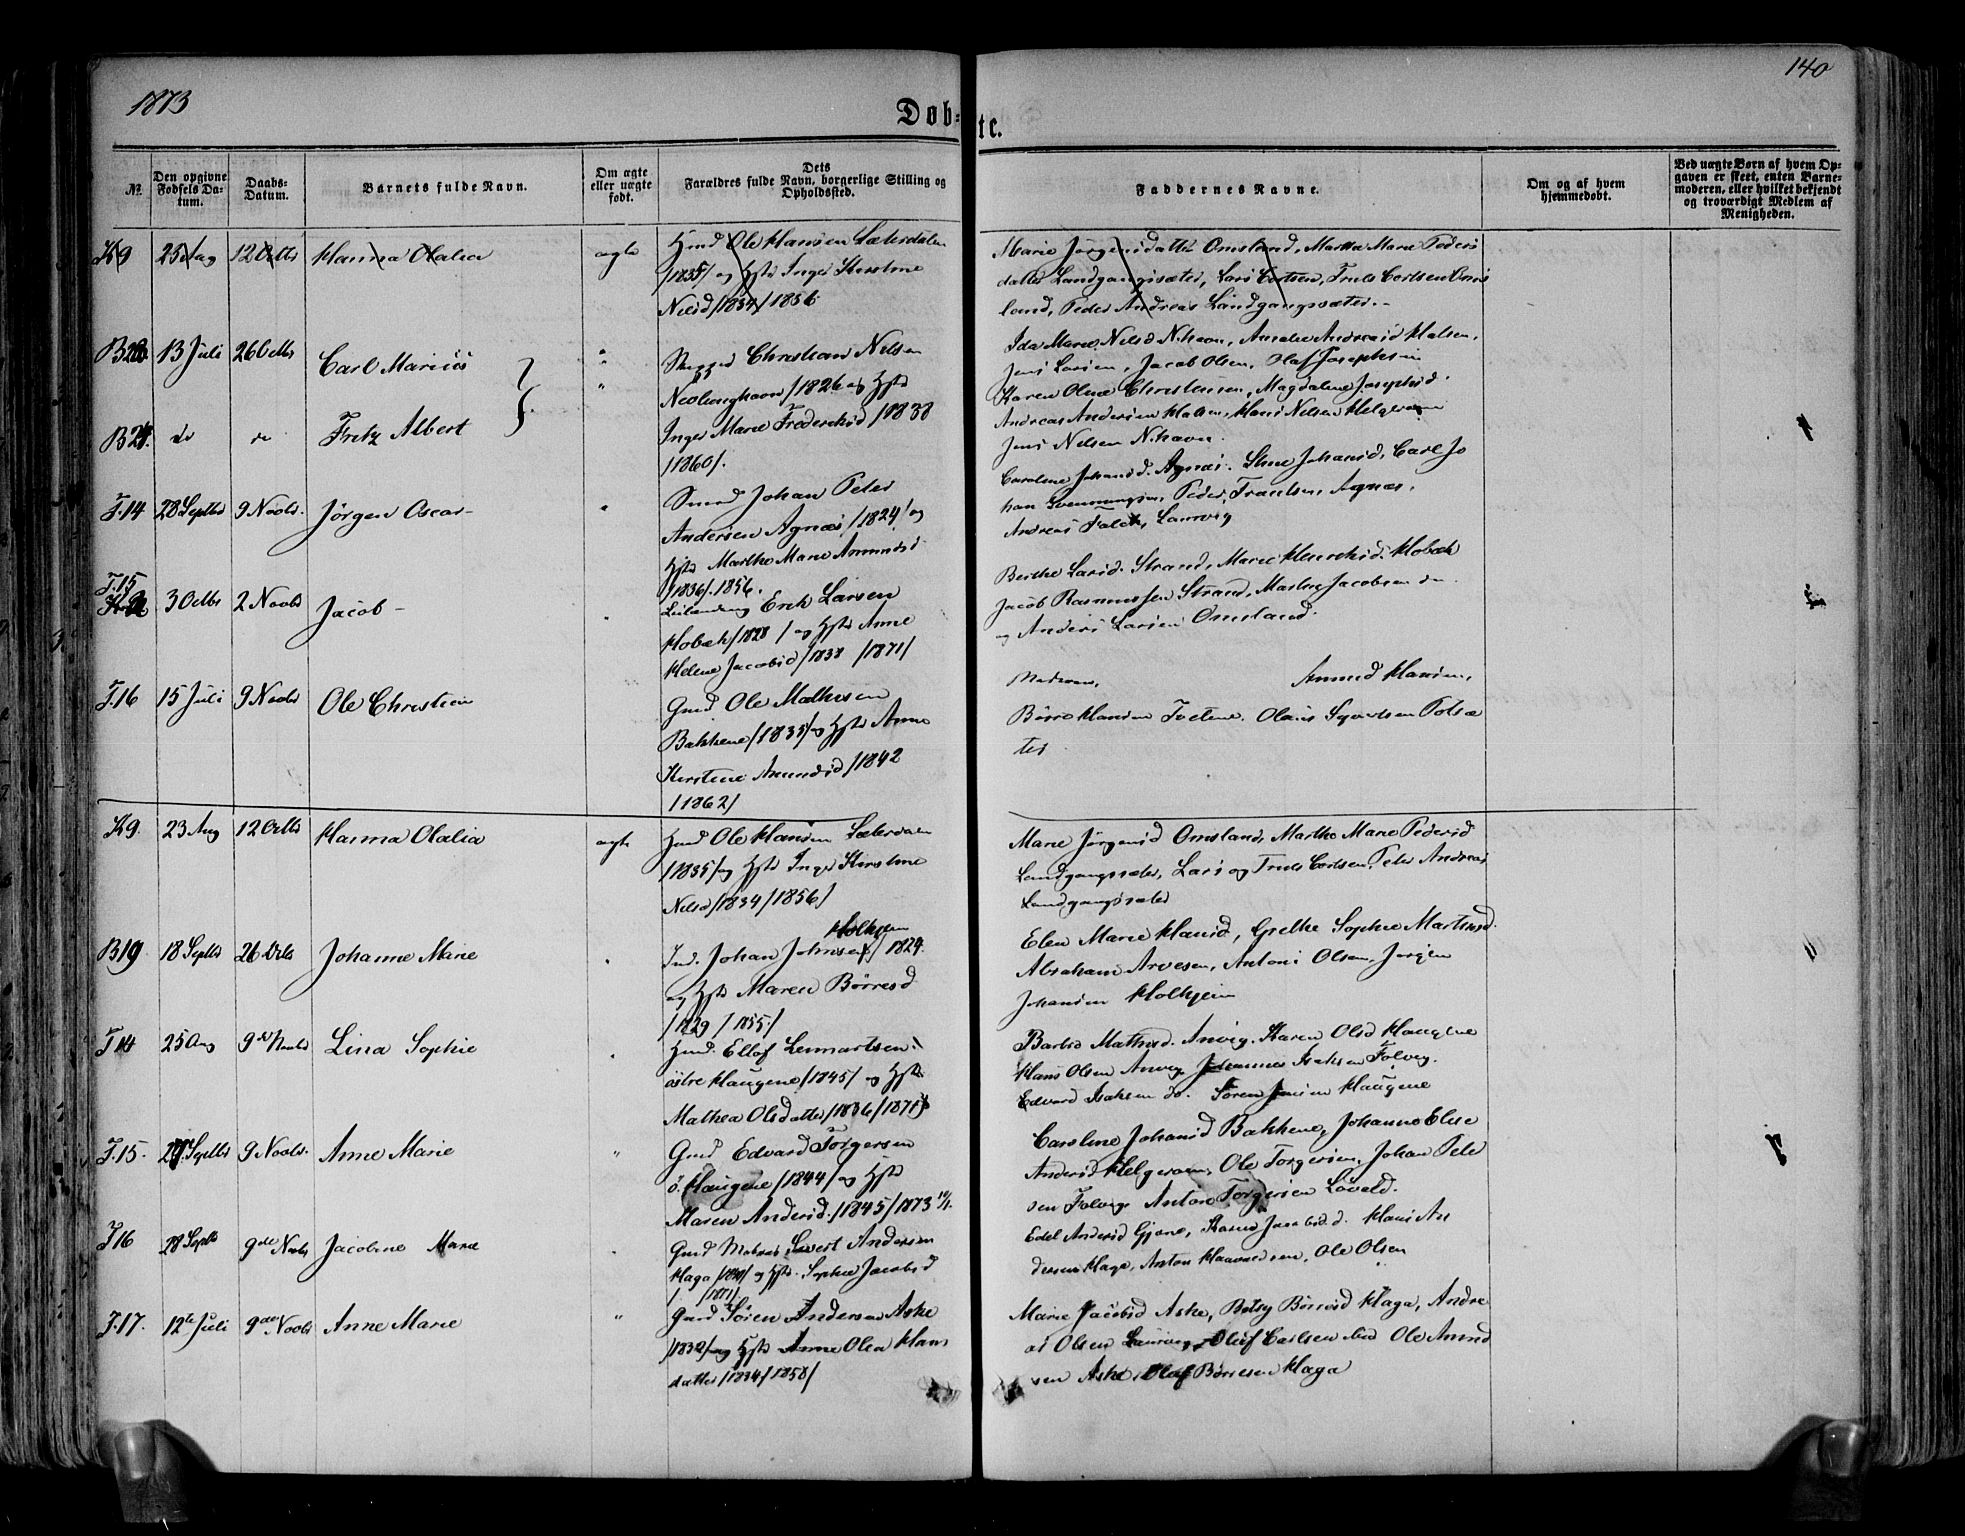 1873
140
Døb-
te.
№
Den opgivne Fødsels Datum.
Daabs-Datum.
Barnets fulde Navn.
Om ægte eller uægte født.
Dets Forældres fulde Navn, borgerlige Stilling og Opholdssted.
Faddernes Navne.
Om og af hvem hjemmedøbt.
Ved uægte Børn af hvem Opgaven er skeet, enten Barnemoderen, eller hvilket bekjendt og troværdigt Medlem af Menigheden.
K9 25 Aug 12 Octbr Hanna Olalia ægte
Hmd Ole Hansen Sæterdalen
/1835/ og Hstr Inger Kirstine
Nielsd /1834/ 1856
Marie Jørgensdatter Omsland, Martha Marie Peders
datter Landgangssæter, Lars Carlsen, Truls Carlsen Oms
land, Peder Andreas Landgangssæter.-
B 13 Juli 26 Octbr Carl Marius "
Skipper Christian Nilsen
Nevlunghavn /1826 og Hstr
Inger Marie Frederiksd /1838
/1860/.
Ida Marie Nilsd N.havn, Amalie Andreasd Halsen,
Jens Larsen, Jacob Olsen, Olaf Josephsen
B21. do do Fritz Albert "
Karen Oline Christensen, Magdalene Josephsd.
Andreas Andersen Halsen, Hans Nilsen Helgeroen
Jens Nilsen N.havn.
F.14 28 Septbr 9 Novbr. Jørgen Oscar- "
Smed Johan Peter
Andersen Agnæs /1824/ og
Hstr Marthe Marie Amundsd
/1836/. 1856.
Caroline Johansd. Agnæs. Stine Johansd, Carl Jo
han Svenningsen, Peder Frantsen, Agnæs,
Andreas Falck, Laurvig
F.15 3 Octbr 2 Novbr Jacob - "
Leilænding Erik Larsen
Hobæk /1828 / og Hstr Anne
Helene Jacobsd /1838 /1871/
Berthe Larsd. Strand, Maren Henriksd. Hobæk
Jacob Rasmussen Strand, Martin Jacobsen do
og Anders Larsen Omsland.
F.16 15 Juli 9 Novbr Ole Christian
Gmd Ole Mathisen
Bakkene /1835/ og Hstr Anne
Kirstine Amundsd /1842
/1862/
Moderen, Amund Hansen,
Børre Hansen Tvetene. Olaus Sivertsen Polsæ
ter
K9. 23 Aug 12 Octbr Hanna Olalia ægte
Hmd Ole Hansen Sæterdalen
/1835/ og Hstr Inger Kirstine
Nilsd /1834 /1856/
Marie Jørgensd Omsland, Marthe Marie Pedersd
Landgangssæter, Lars og Truls Carlsen, Peter Andreas
Landgangssæter
B19 18 Septbr 26 Octb Johanne Marie "
Holhjem
Ind. Johan Johnsen / 1824.
og Hstr Maren Børresd
/1829 / 1855/
Elen Marie Hansd, Grethe Sophie Martinsd.
Abraham Arvesen, Antoni Olsen, Jørgen
Johansen Holhjem
F14 25 Aug 9de Novbr Lina Sophie "
Hmd. Ellef Lennartsen
østre Haugene /1845/ og Hstr
Mathea Olsdatter /1836 /1871
Barbro Mathisd. Anvig. Karen Olsd Haugene
Hans Olsen Anvig Johannes Isaksen Følvig.
Edvard Isaksen do. Søren Jensen Haugene
F.15. 29. Septbr 9 Novbr. Anne Marie "
Gmd Edvard Torgersen
ø. Haugene /1844/ og Hstr
Maren Andersd. /1845 /1873
Caroline Johansd Bakkene, Johanne Elise
Andersd Helgeroen, Ole Torgersen, Johan Peter
sen Følvig Anton Torgersen Løvald.
F16 28 Septb 9de Novbr Jacobine Marie "
Gmd Matros Sivert Andersen
Haga og Hstr. Sophie Jacobsd
/ /1871/.
Edel Andersd Gjone, Karen Jacobsd. Hans An
dersen Haga, Anton Haavaldsen, Ole Olsen
F.17. 12te Juli 9de Novbr Anne Marie "
Gmd Søren Andersen Aske
/1832/ og Hstr Anne Olea Hans
datter /1834/ 1858/
Marie Jacobsd Aske, Betsy Børresd Haga, Andre
as Olsen Laurvig, Oluf Carlsen ibid Ole Amund
sen Aske, Olaf Børresen Haga